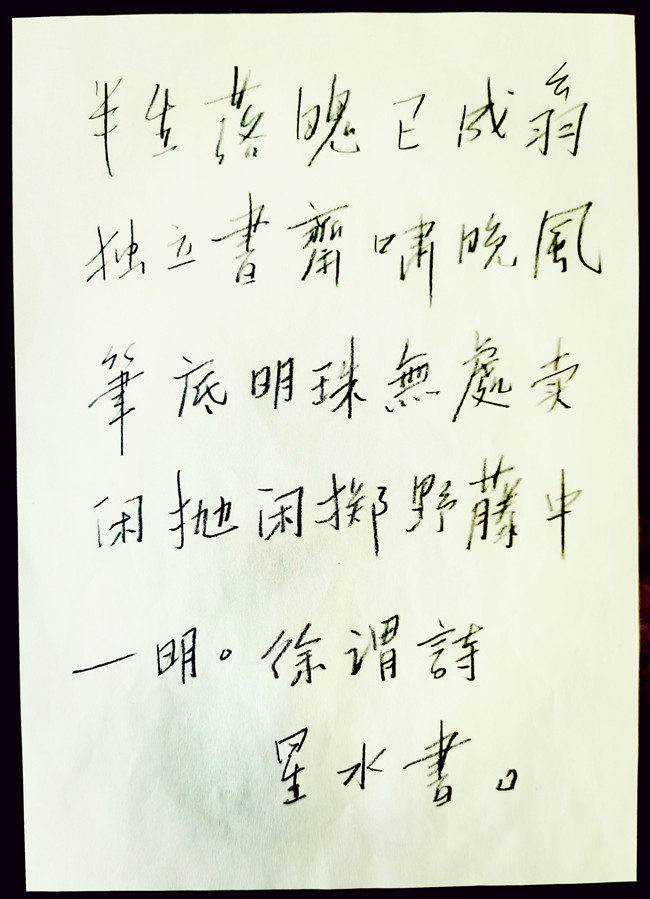 半生落魄已成翁
独立書齋啸晚風
筆底明珠無處卖
闲抛闲掷野藤中
一明。徐谓詩
星水書。